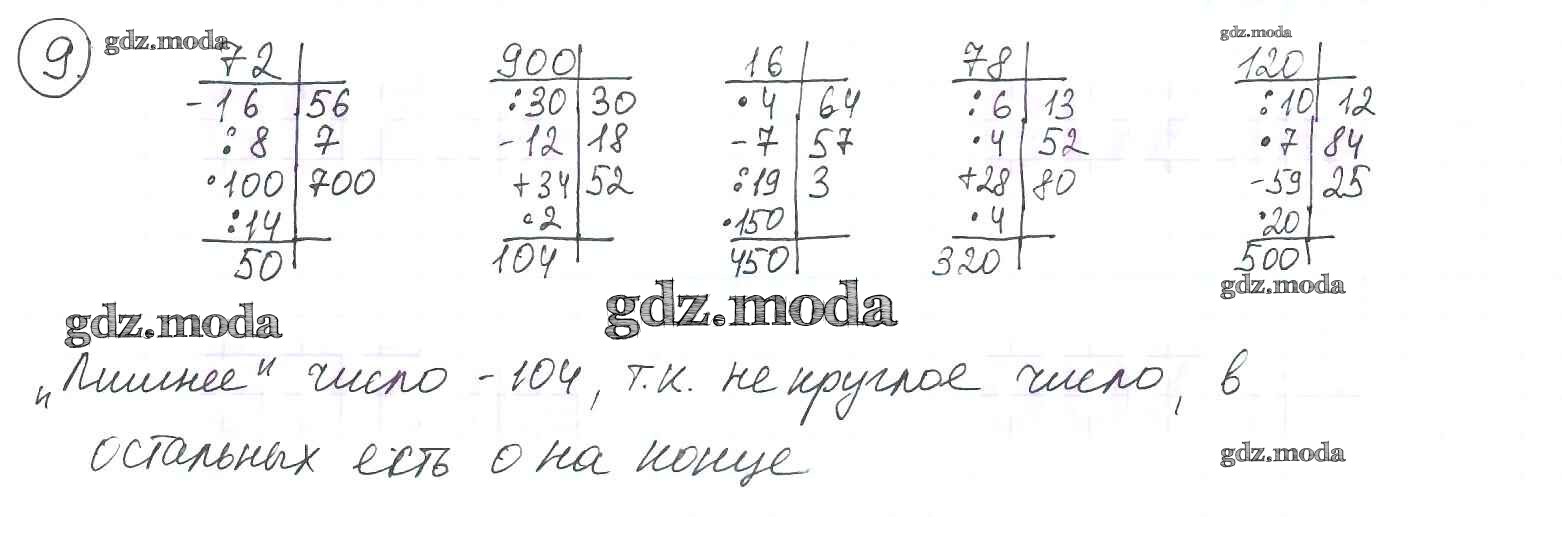 9. gdz.moda gdz.moda
72 900 16 78 120
-16 56 :30 30 ·4 64 :6 13 :10 12
:8 7 -12 18 -7 57 ·4 52 ·7 84
·100 700 +34 52 :19 3 +28 80 -59 25
:14 ·2 ·150 ·4 ·20
50 104 450 320 500
gdz.moda gdz.moda gdz.moda
„Лишнее" число - 104, т.к. не круглое число, в
остальных есть 0 на конце
gdz.moda